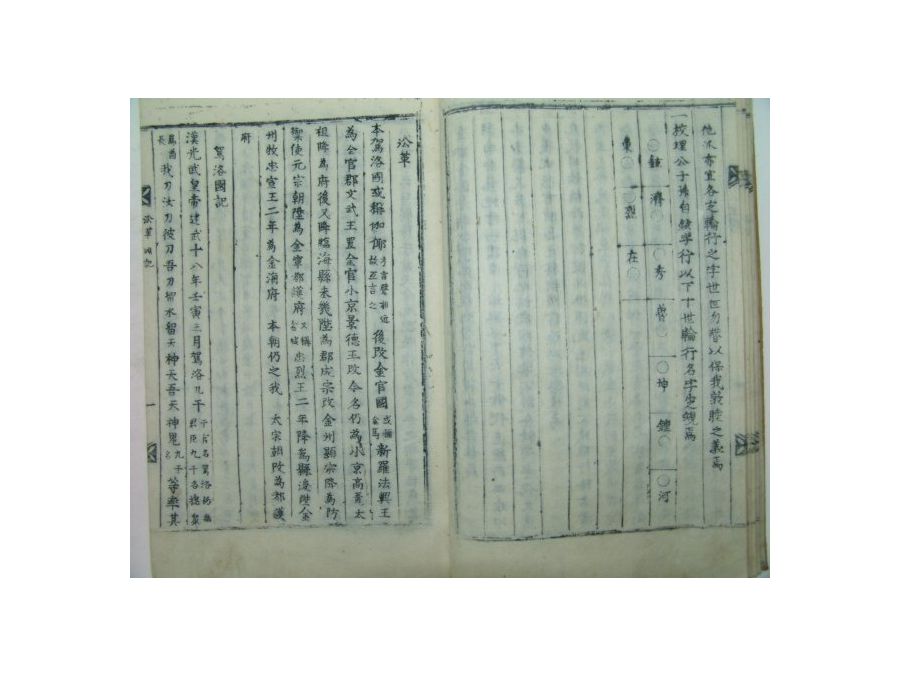 他派亦宜各定輪行之字世世勿替以保我敦睦之義焉
一校理公子孫自鎮學行以下十世輪行名字之規焉
○鉉 濟○ ○秀 曾○ ○坤 鍾○ ○河
東○ ○烈 在○
沿革
本駕洛國或稱伽倻方言聲相近故互言之後改金官國或稱金馬新羅法興王
為金官郡文武王置金官小京景德王改今名仍為小京高麗太
祖降為府後又降臨海縣未幾陞為郡成宗改金州顯宗降為防
禦使元宗朝陞為金寧都護府又稱金城忠烈王二年降為縣後陞金
州牧忠宣王二年為金海府 本朝仍之我 太宗朝改為都護
府
駕洛國記
漢光武皇帝建武十八年壬寅三月駕洛九干
為酋長我刀汝刀彼刀吾刀留水留天神天吾天神鬼九干名等率其
沿革 國記 一